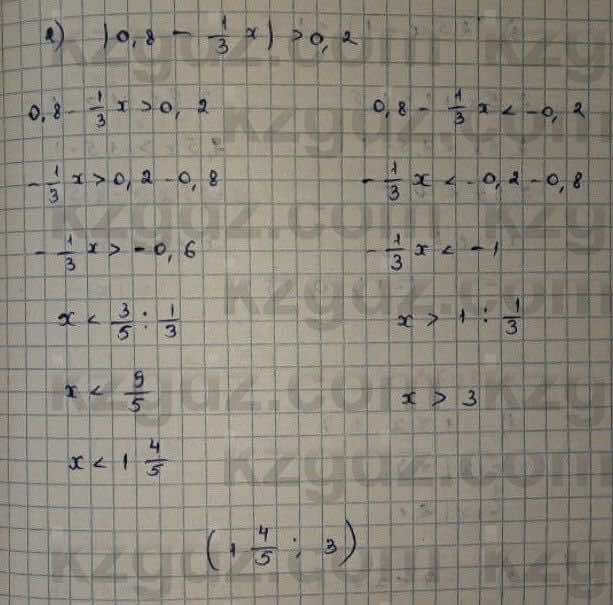 2) |0,8 - 1/3 x| > 0,2
0,8 - 1/3 x > 0,2
0,8 - 1/3 x < -0,2
-1/3 x > 0,2 - 0,8
-1/3 x < -0,2 - 0,8
-1/3 x > -0,6
-1/3 x < -1
x < 3/5 : 1/3
x > 1 : 1/3
x < 9/5
x > 3
x < 1 4/5
(1 4/5 ; 3)
kzgdz.com